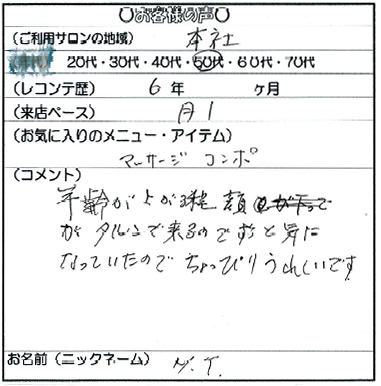 お客様の声
(ご利用サロンの地域) 本社
年代 20代・30代・40代・50代・60代・70代
(レコンテ歴) 6 年 ヶ月
(来店ペース) 月1
(お気に入りのメニュー・アイテム)
マッサージ コンポ
(コメント)
年齢が上がる程 顔
が タルんで来るのでずっと気に
なっていたので ちょっぴりうれしいです
お名前(ニックネーム) M.T.